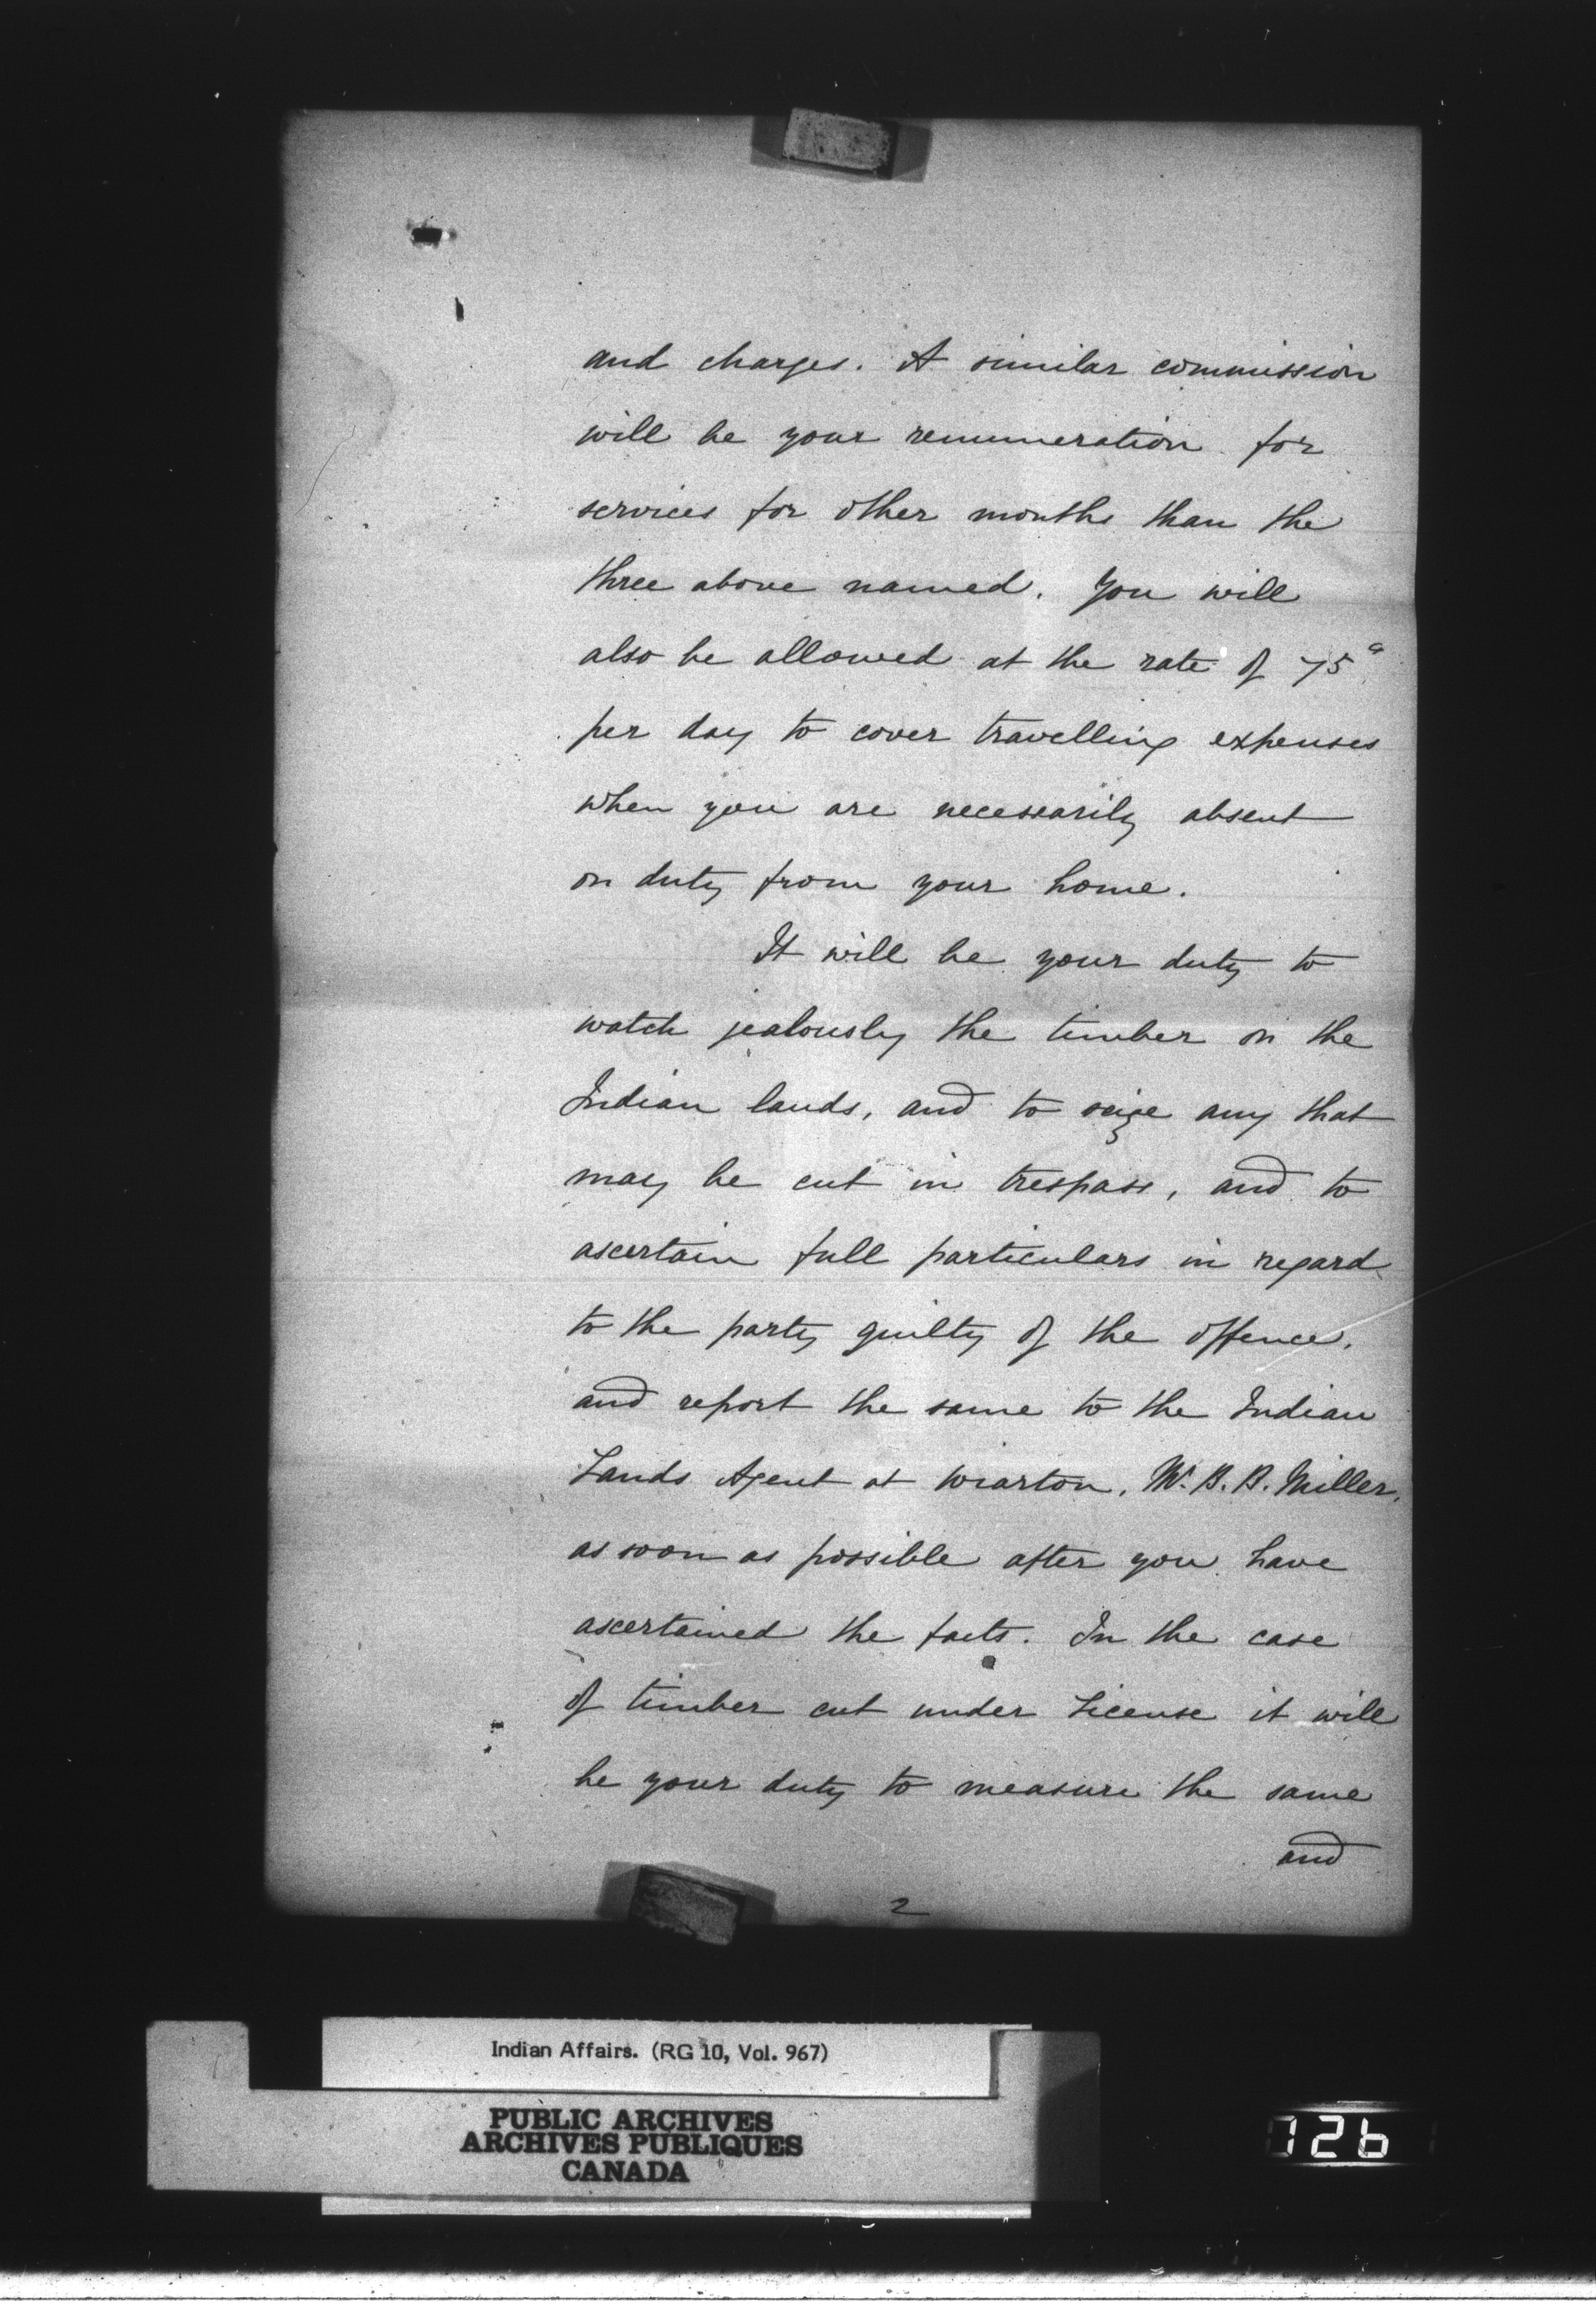 and charges. A similar commission
will be your remuneration for
services for other months than the
three above named. You will
also be allowed at the rate of 75c
per day to cover travelling expenses
when you are necessarily absent
on duty from your home.
It will be your duty to
watch jealously the timber on the
Indian lands, and to seize any that
may be cut in trespass, and to
ascertain full particulars in regard
to the party guilty of the offence,
and report the same to the Indian
Lands Agent at Wiarton, Mr. B. B. Miller,
as soon as possible after you have
ascertained the facts. In the case
of timber cut under License it will
be your duty to measure the same
and
2
Indian Affairs. (RG 10, Vol. 967)
PUBLIC ARCHIVES
ARCHIVES PUBLIQUES
CANADA
126